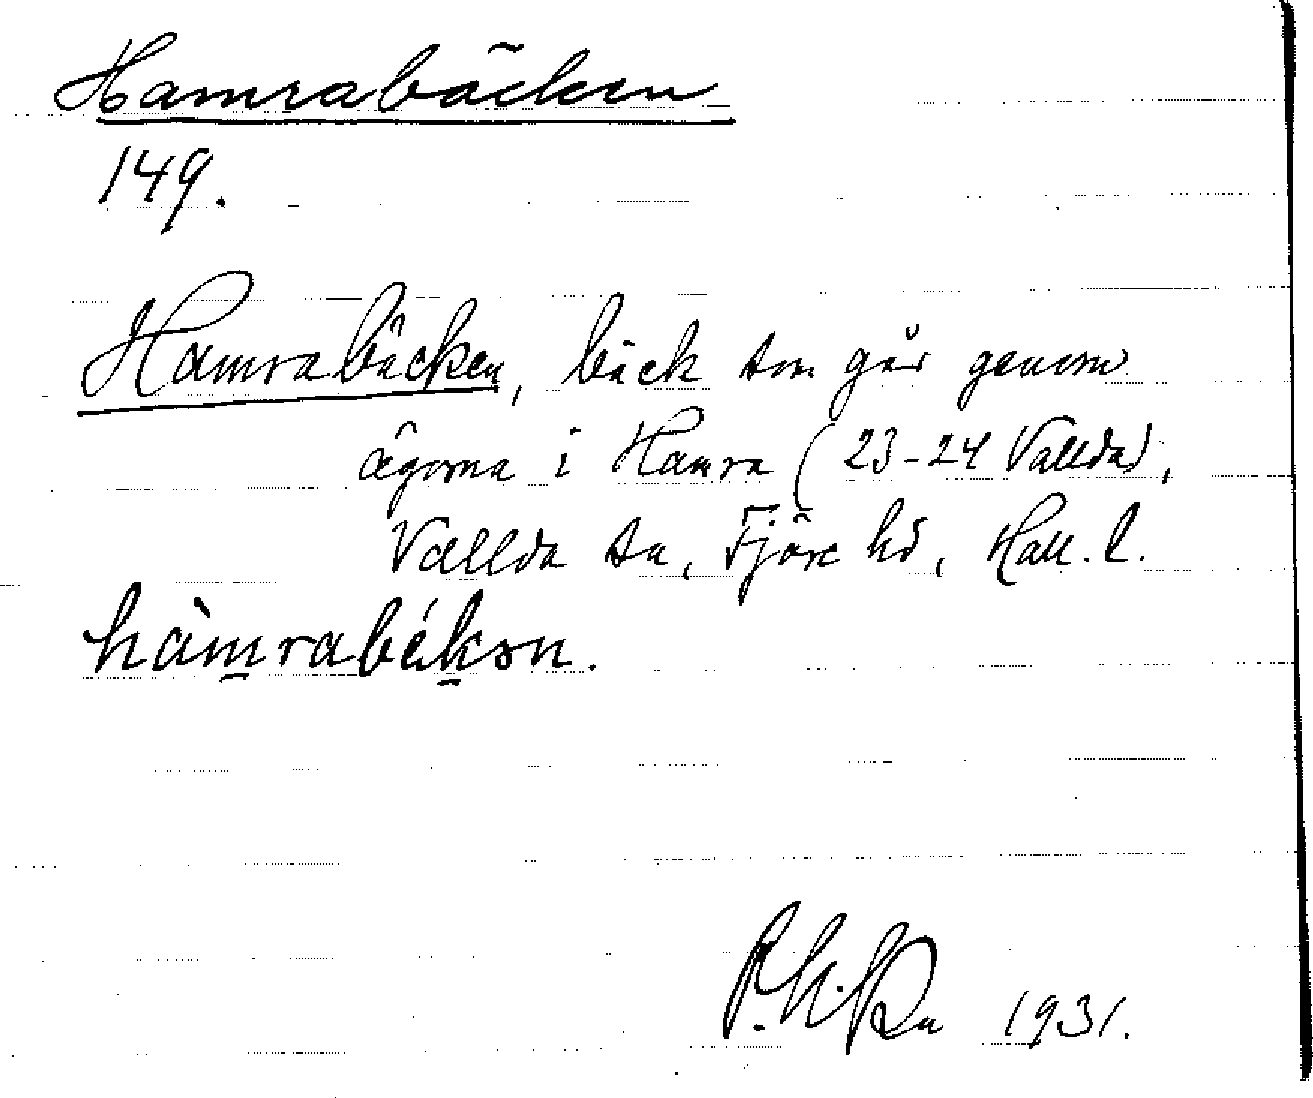 Hamrabäcken
149.
Hamrabäcken, bäck som går genom
ägorna i Hamra (23-24 Vallda),
Vallda sn, Fjäre hd, Hall. l.
hàmrabékən.
1931.